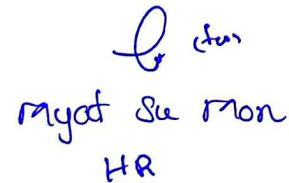 Myat Su Mon
HR